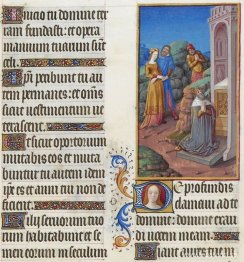 Inicio tu domine ter
ram fundasti: et opera
manuum tuarum sunt
celi.
Ipsi peribunt tu au
tem permanes: et om̄s
sicut uestimentum ue
terascent.
Et sicut opertorium
mutabis eos et muta
buntur: tu autem idem
ipse es et anni tui non
deficient.
Filii seruorum tuo
rum habitabunt et se
men eorum in seculum
De profundis
clamaui ad te
domine: domine exau
di uocem meam.
Fiant aures tue in